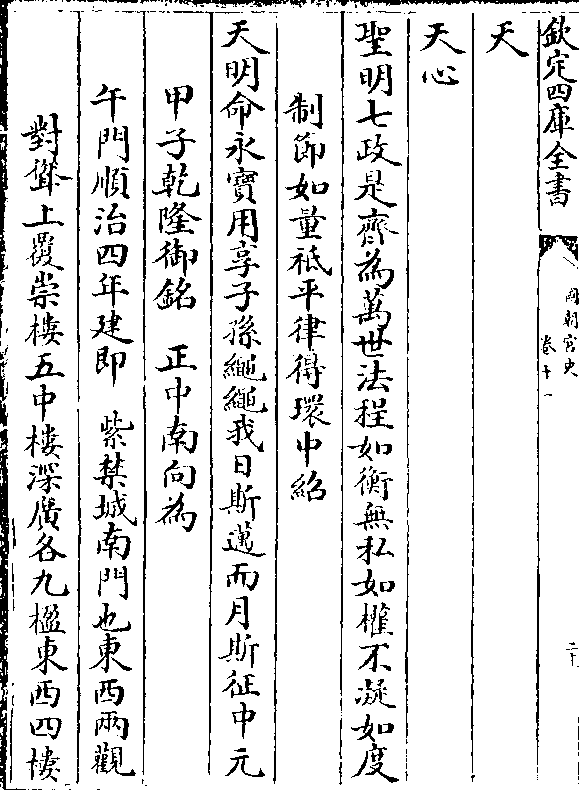 欽定四庫全書
國朝宮史
卷十一
天
天心
聖明七政是齊為萬世法程如衡無私如權不凝如度
制節如量祗平律得環中紹
天明命永寶用享子孫繩繩我日斯邁而月斯征中元
甲子乾隆御銘 正中南向為
午門順治四年建即 紫禁城南門也東西兩觀
對聳上覆崇樓五中樓深廣各九楹東西四樓